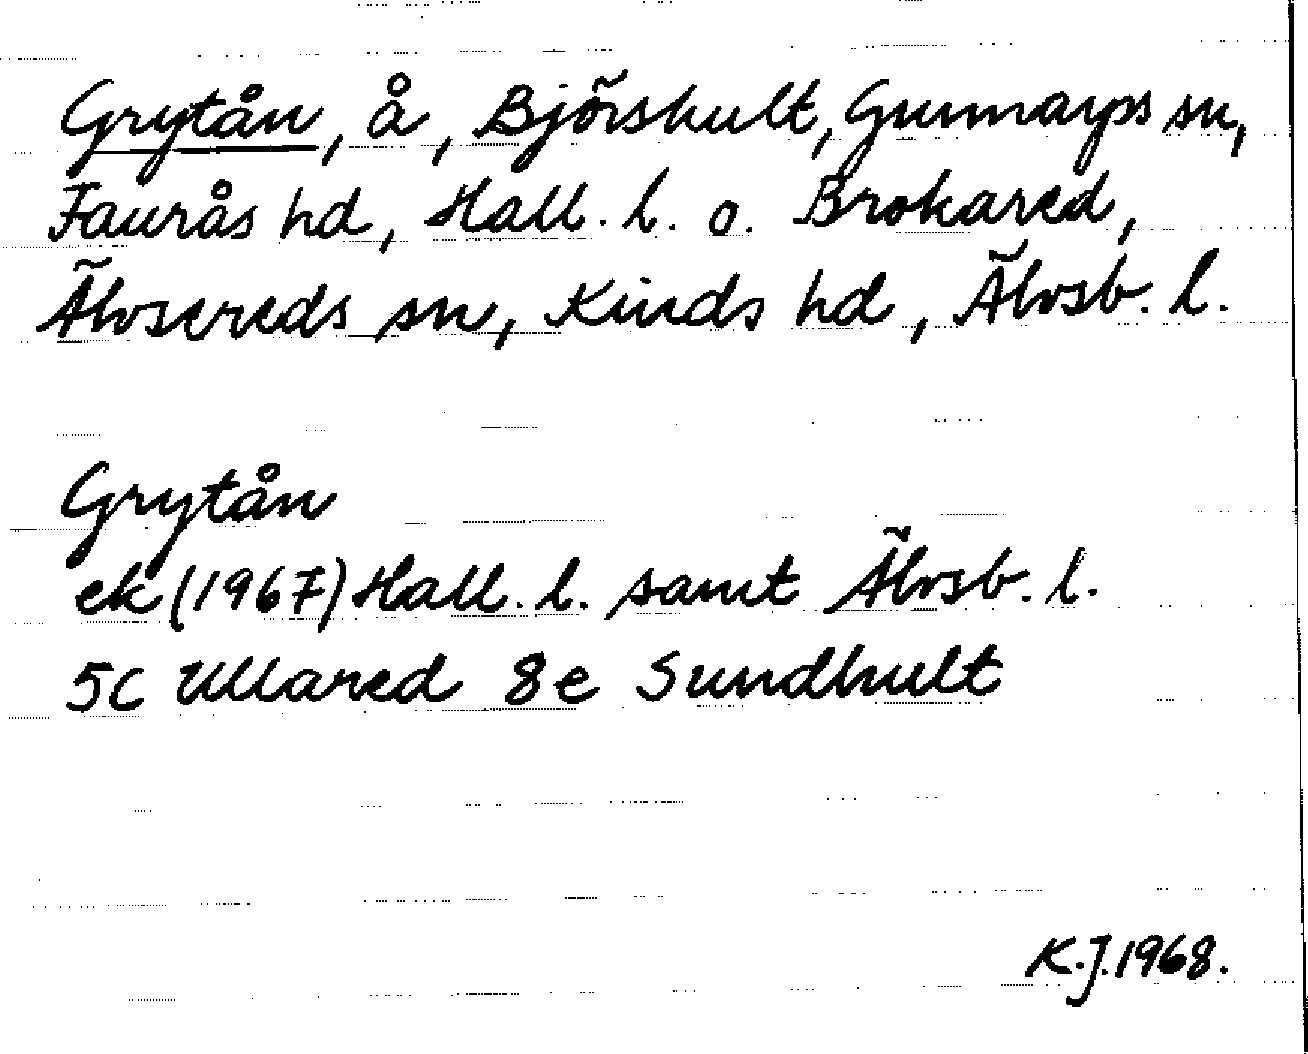 Grytån, å, Björshult, Gunnarps sn,
Faurås hd, Hall. l. o. Brokared,
Älvsereds sn, Kinds hd, Älvsb. l.
Grytån
ek (1967) Hall. l. samt Älvsb. l.
5c Ullared 8e Sundhult
K.J. 1968.